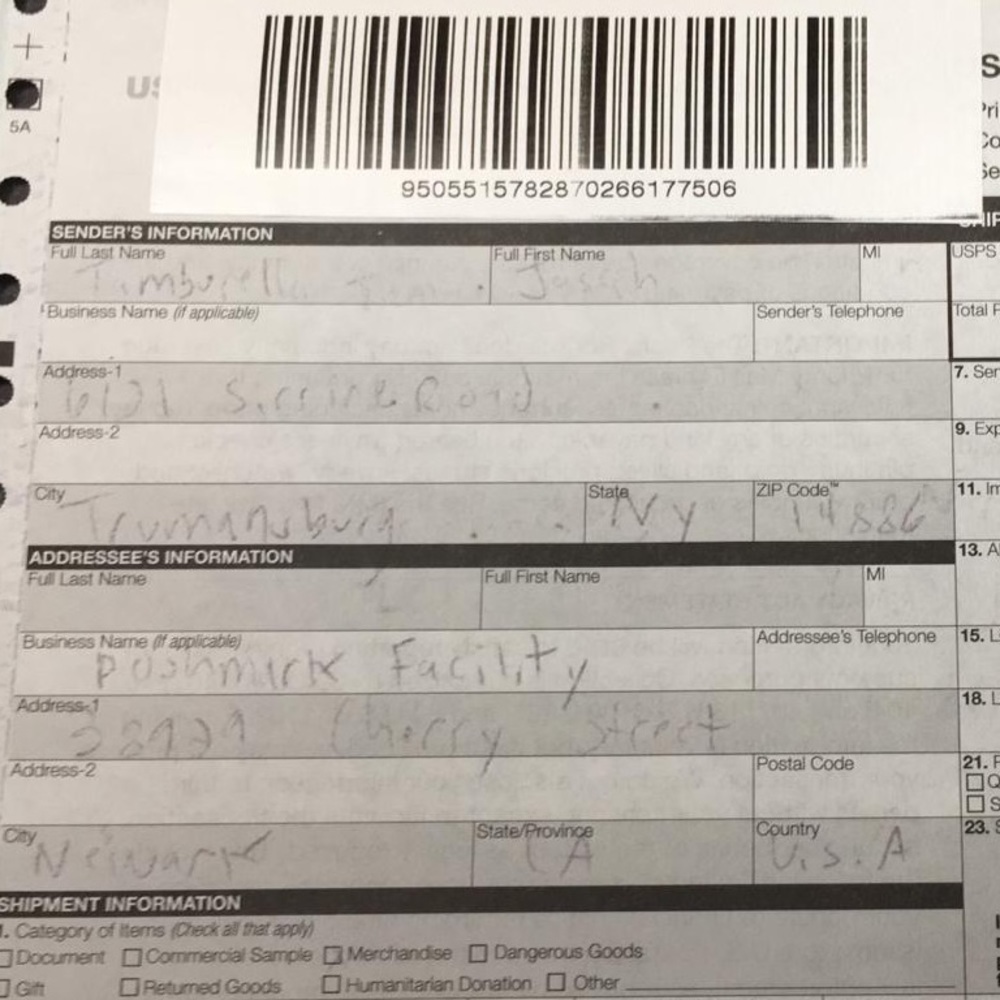 5A
US
9505515782870266177506
SENDER'S INFORMATION
Full Last Name Full First Name MI USPS
Joseph
Business Name (if applicable) Sender's Telephone Total
Address-1 7.
Road
Address-2 9. Exp
City State ZIP Code™ 11.
Trumansburg NY 14886
ADDRESSEE'S INFORMATION 13.
Full Last Name Full First Name MI
Business Name (if applicable) Addressee's Telephone 15.
Poshmark Facility
Address-1 18.
Cherry Street
Address-2 Postal Code 21.
City State/Province Country 23.
Newark CA U.S.A
SHIPMENT INFORMATION
1. Category of Items (Check all that apply)
Document Commercial Sample Merchandise Dangerous Goods
Gift Returned Goods Humanitarian Donation Other